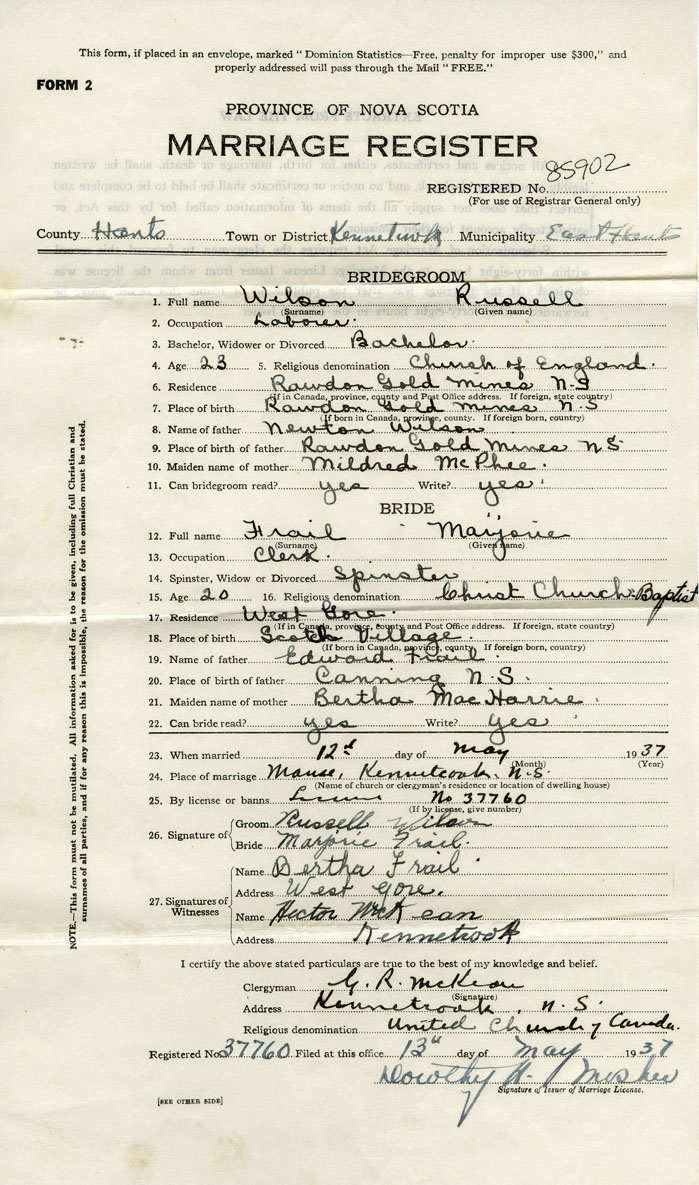 This form, if placed in an envelope, marked "Dominion Statistics—Free, penalty for improper use $300," and
properly addressed will pass through the Mail "FREE."
FORM 2
PROVINCE OF NOVA SCOTIA
MARRIAGE REGISTER
REGISTERED No. 85902
(For use of Registrar General only)
County Hants Town or District Kennetcook Municipality East Hants
BRIDEGROOM
1. Full name Wilson Russell
(Surname) (Given name)
2. Occupation Laborer.
3. Bachelor, Widower or Divorced Bachelor
4. Age 23 5. Religious denomination Church of England.
6. Residence Rawdon Gold Mines N.S
(If in Canada, province, county and Post Office address. If foreign, state country)
7. Place of birth Rawdon Gold Mines N.S
(If born in Canada, province, county. If foreign born, country)
8. Name of father Newton Wilson
9. Place of birth of father Rawdon Gold Mines NS
10. Maiden name of mother Mildred McPhee.
11. Can bridegroom read? yes Write? yes
BRIDE
12. Full name Frail Marjorie
(Surname) (Given name)
13. Occupation Clerk.
14. Spinster, Widow or Divorced Spinster
15. Age 20 16. Religious denomination Christ Church-Baptist
17. Residence West Gore.
(If in Canada, province, county and Post Office address. If foreign, state country)
18. Place of birth Scotch Village.
(If born in Canada, province, county. If foreign born, country)
19. Name of father Edward Frail.
20. Place of birth of father Canning N.S.
21. Maiden name of mother Bertha MacHarrie.
22. Can bride read? yes Write? yes
23. When married 12th day of May 1937
(Month) (Year)
24. Place of marriage Manse, Kennetcook. N.S.
(Name of church or clergyman's residence or location of dwelling house)
25. By license or banns License No 37760
(If by license, give number)
26. Signature of
Groom Russell Wilson
Bride Marjorie Frail.
27. Signatures of Witnesses
Name Bertha Frail
Address West Gore.
Name Hector McKean
Address Kennetcook
I certify the above stated particulars are true to the best of my knowledge and belief.
Clergyman G. R. McKean
(Signature)
Address Kennetcook, N.S.
Religious denomination United Church of Canada.
Registered No. 37760 Filed at this office 13th day of May 1937
Dorothy H. Mosher
Signature of Issuer of Marriage License.
[SEE OTHER SIDE]
NOTE.—This form must not be mutilated. All information asked for is to be given, including full Christian and
surnames of all parties, and if for any reason this is impossible, the reason for the omission must be stated.